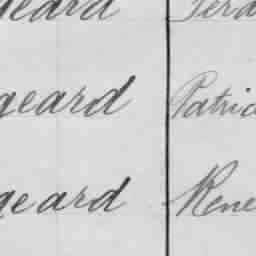 geard Ferd
geard Patric
geard Rene